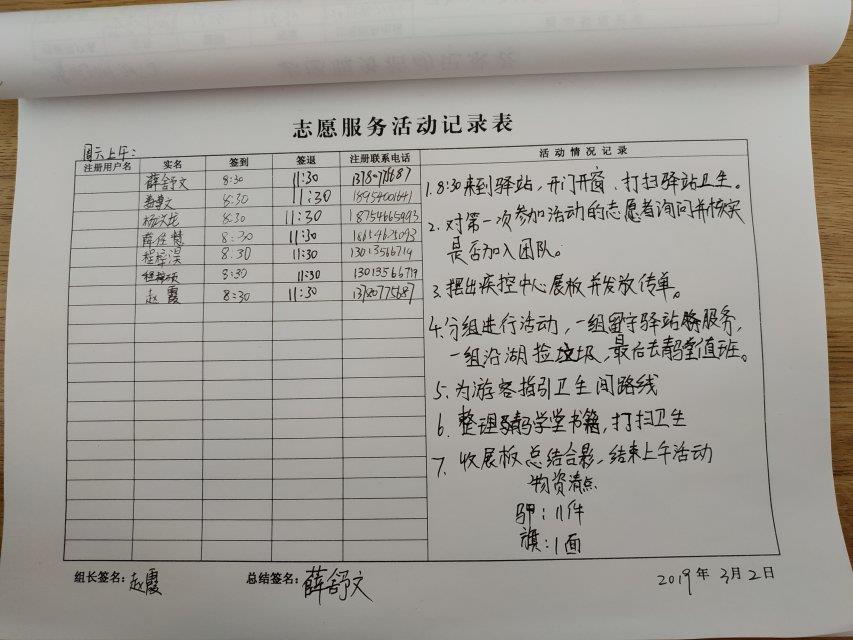 志愿服务活动记录表
周六上午：
注册用户名 实名 签到 签退 注册联系电话 活动情况记录
薛舒文 8:30 11:30
8:30 11:30 18954001641
8:30 11:30 18754665493
8:30 11:30
8:30 11:30 13013566719
8:30 11:30 13013566719
赵霞 8:30 11:30 13780775687
1. 8:30来到驿站，开门开窗、打扫驿站卫生。
2. 对第一次参加活动的志愿者询问并核实
是否加入团队。
3. 摆出疾控中心展板并发放传单。
4. 分组进行活动，一组留守驿站服务，
一组沿湖捡垃圾，最后去值班。
5、为游客指引卫生间路线
6、整理学堂书籍，打扫卫生
7、收展板总结合影，结束上午活动
物资清点
马甲：11件
旗：1面
组长签名：赵霞 总结签名：薛舒文 2019年3月2日